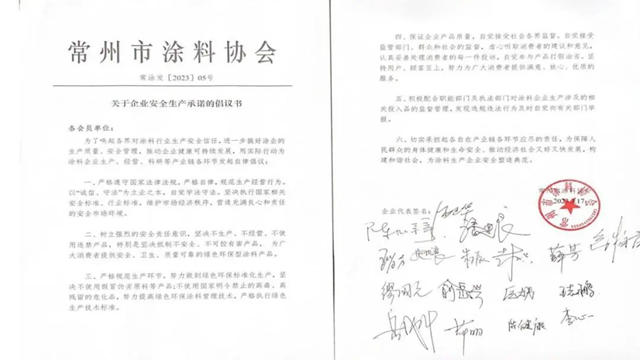 常州市涂料协会
常涂发【2023】05号
关于企业安全生产承诺的倡议书
各会员单位：
为了唤起各界对涂料行业生产安全信任，进一步搞好涂企的
生产质量、安全管理，推动企业健康可持续发展，现实行动为
涂料企业生产、经营、科研等产业链各环节发起自律倡议：
一、严格遵守国家法律法规，严格自律，规范生产经营行为，
以“诚信、守法”为立业之本，自觉学法守法，坚决执行国家相关安
全标准、行业标准，维护市场经济秩序，营造充满良心和责任
的安全市场环境。
二、树立强烈的安全责任意识，坚决不生产、不经营、不使
用违禁产品，特别是坚决抵制不安全、不可控有害产品，为广
大消费者提供安全、卫生、质量可靠的绿色环保型涂料产品。
三、严格规范生产环节，努力做到绿色环保标准化生产，坚
决不使用假冒伪劣原料等产品;不使用国家明令禁止的高毒、高
残留的危化品，努力提高绿色环保涂料管理技术，严格执行绿色
生产技术标准。
四、保证企业产品质量，自觉接受社会各界监督，自觉接受
监管部门、群众和社会的监督，虚心听取消费者的建议和意见，
认真妥善处理消费者的每一件投诉，自觉参与产品打假治劣，坚
持用户、顾客至上，努力为广大消费者提供满意、核心、优质的
服务。
五、积极配合职能部门及执法部门对涂料企业生产涉及的相
关投入品的监督管理，发现违规违法行为及时自觉向有关部门举
报。
六、切实承担起各自在产业链各环节应尽的责任，为保障人
民群众的身体健康和生命安全，推动经济社会又好又快发展，构
建和谐社会，为涂料生产企业安全塑造典范。
企业代表签名：